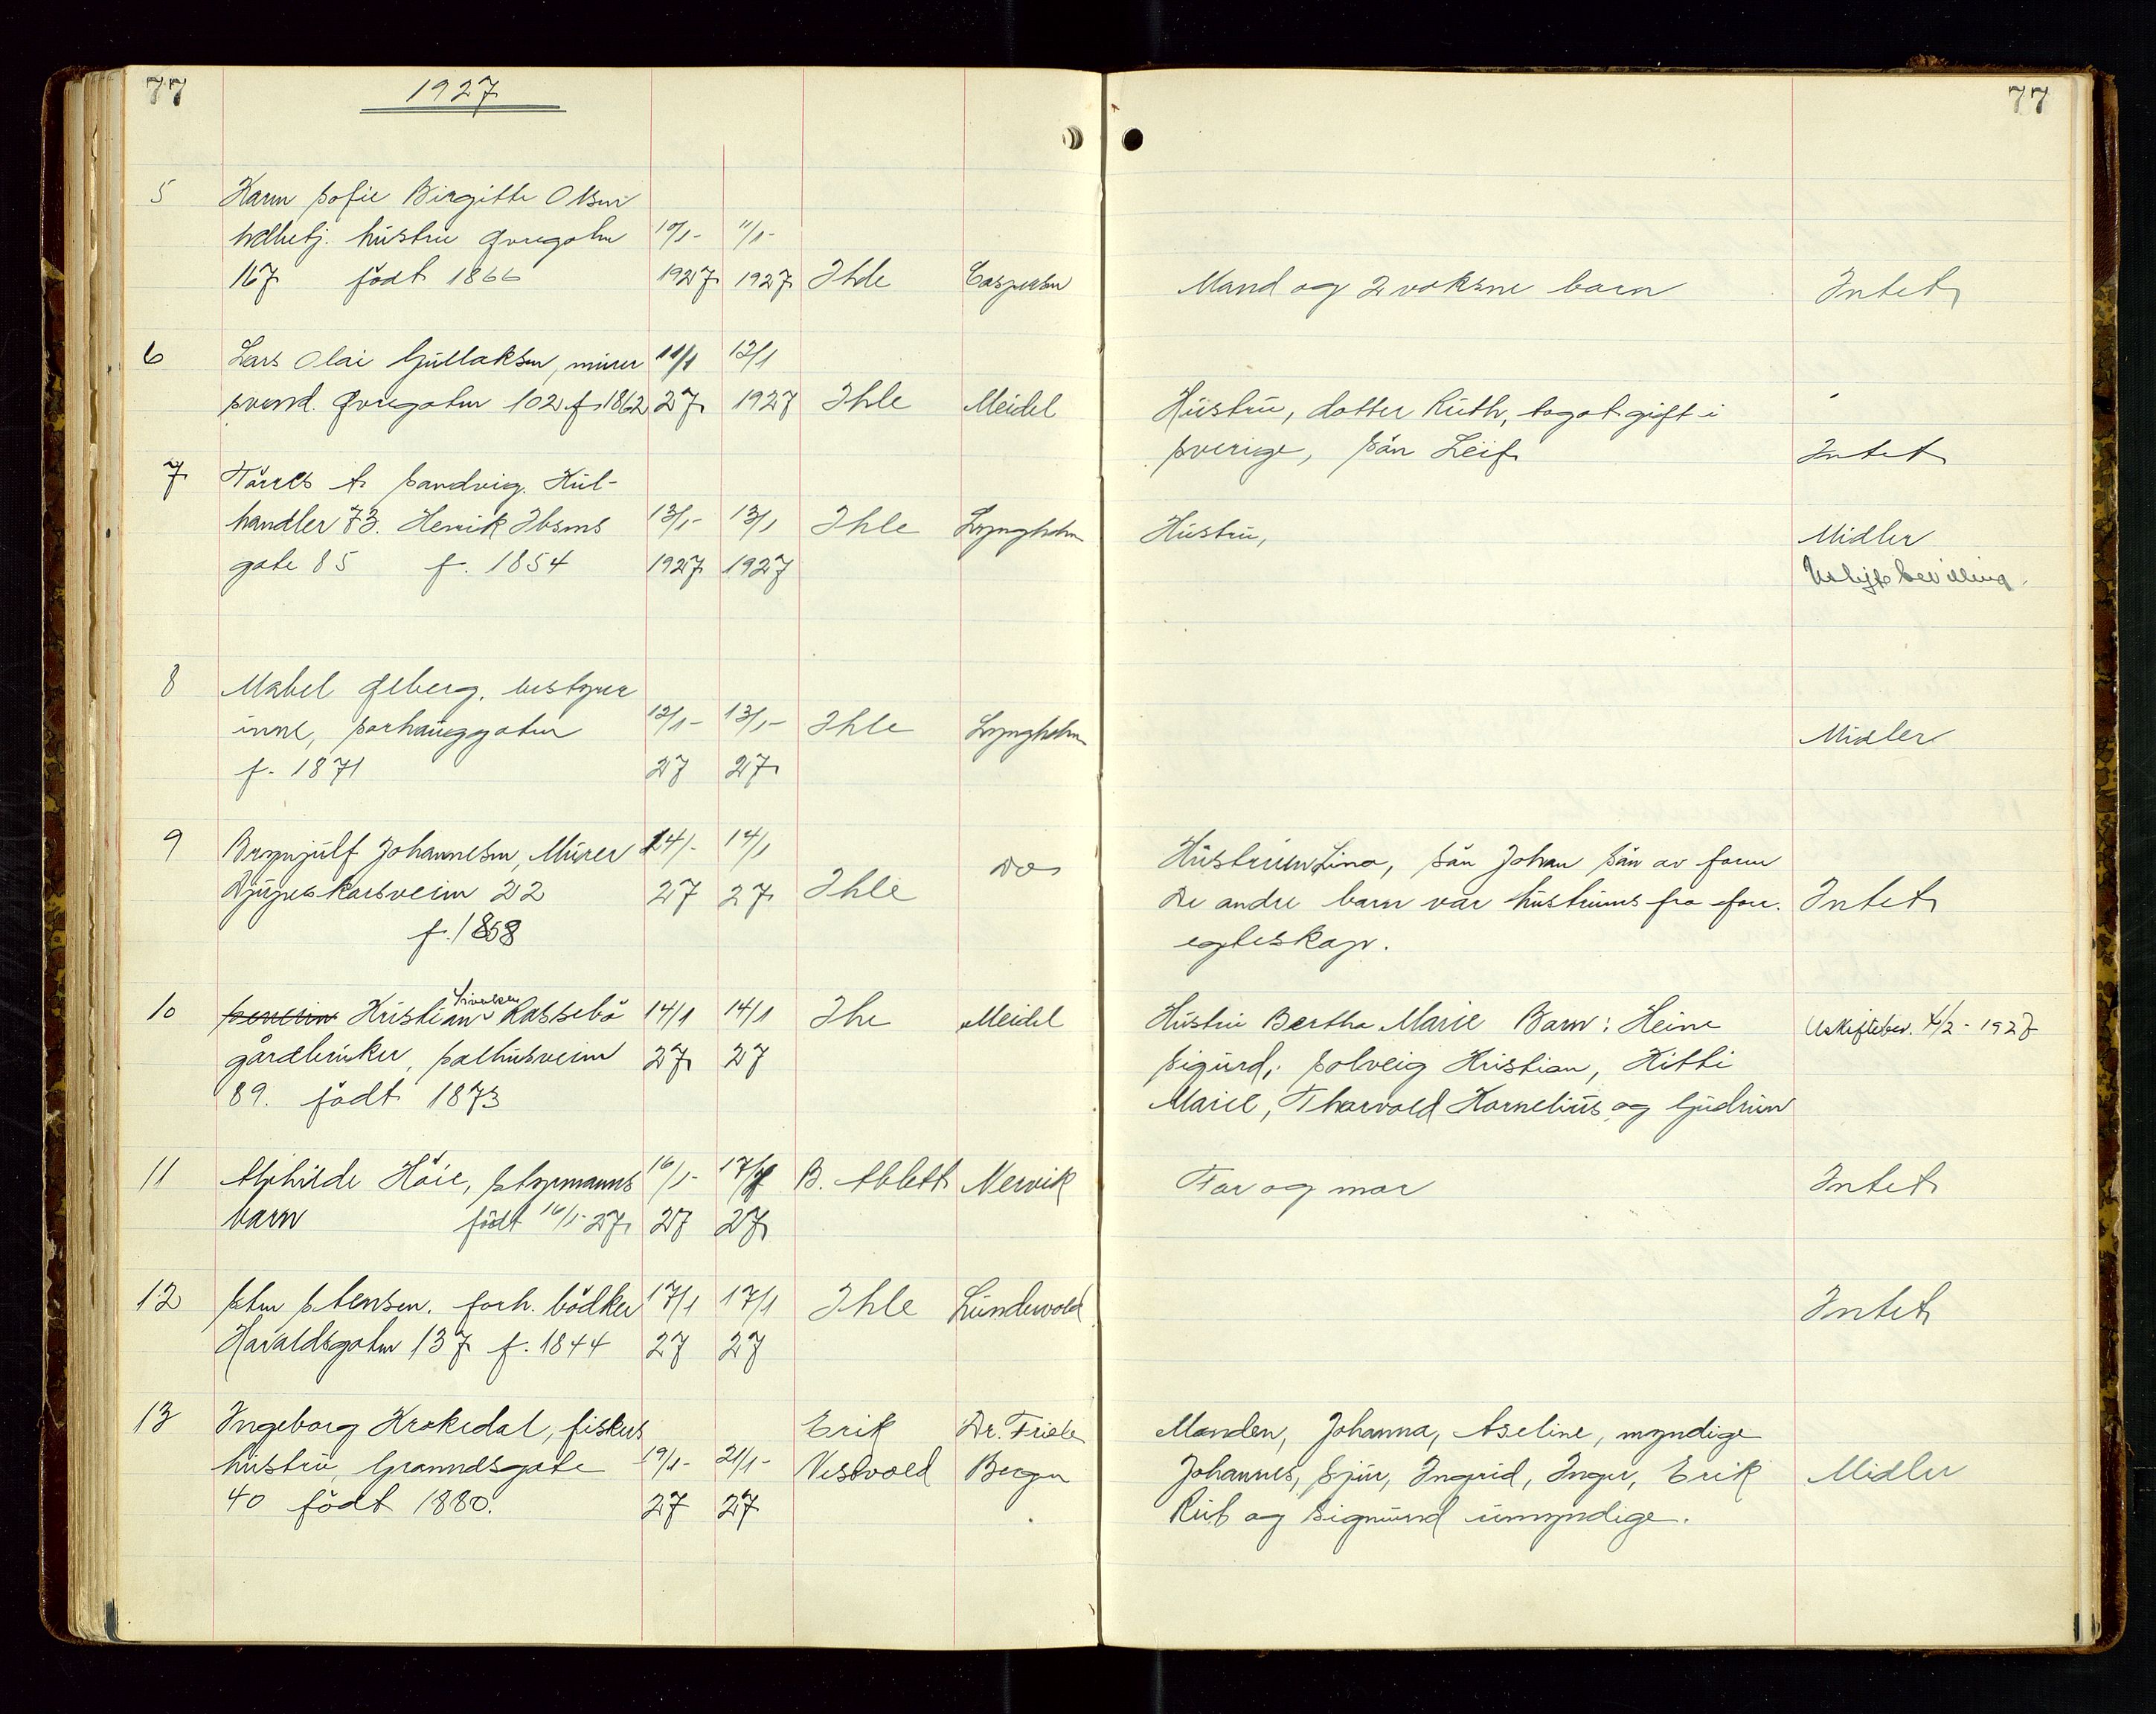 77
1927
77
5 Karen Sofie Birgitte Olsen
hustru Øvregaten 10/1- 11/1-
167 födt 1866 1927 1927 Ihle Caspersen Mand og 2 voksne barn Intet
6 Lars Olai Gullaksen, murer 11/1 12/1
svend. Øvregaten 102 f. 1862 27 1927 Ihle Meidel Hustru, datter Ruth, gift i
Sverige, sön Leif Intet
7 Törres A. Sandvig. Kul-
handler 73. Henrik Ibsens 13/1- 13/1 Ihle Lyngholm Hustru, Midler
gate 85 f. 1854 1927 1927 Uskiftebevilling.
8 Mabel Øeberg, bestyrer
inne, Sørhauggaten 12/1- 13/1- Ihle Lyngholm Midler
f. 1871 27 27
9 Brynjulf Johannesen, Murer 14/- 14/1 Do Hustruen Lina, sön Johan sön av form
Djupaskarsveien 22 27 27 Ihle De andre barn var hustruens fra forr. Intet
f. 1858 egteskap.
10 Kristian Sivertsen Rassebö 14/1 14/1 Ihe Meidel Hustru Bertha Marie Barn: Heine Uskiftebev. 4/2 - 1927
gårdbruker, Salhusveien 27 27 Sigurd, Solveig Kristian, Kitti
89. födt 1873 Marie, Thorvald Kornelius og Gudrun
11 Alphilde Höie, Styrmanns 16/1- 17/1 B. Ablett Nervik Far og mor Intet
barn födt 16/1-27 27 27
12 Sten Stensen. forh. bödker 17/1 17/1 Ihle Lundevold Intet
Haraldsgaten 137 f. 1844 27 27
13 Ingeborg Krokedal, fiskers Erik Dr. Friele Manden, Johanna, Aseline, myndige
hustru, Grønnesgate 19/1- 21/1- Vestvold Bergen Johannes, Sjur, Ingrid, Inger, Erik Midler
40 födt 1880. 27 27 Rut og Sigmund umyndige.